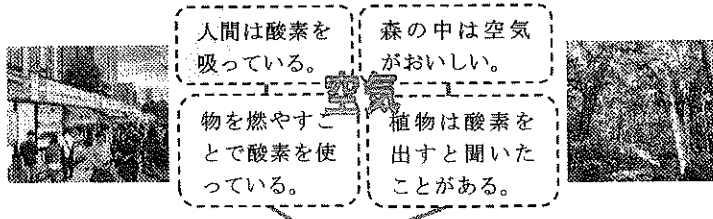 人間は酸素を
吸っている。
森の中は空気
がおいしい。
空気
物を燃やすこ
とで酸素を使
っている。
植物は酸素を
出すと聞いた
ことがある。